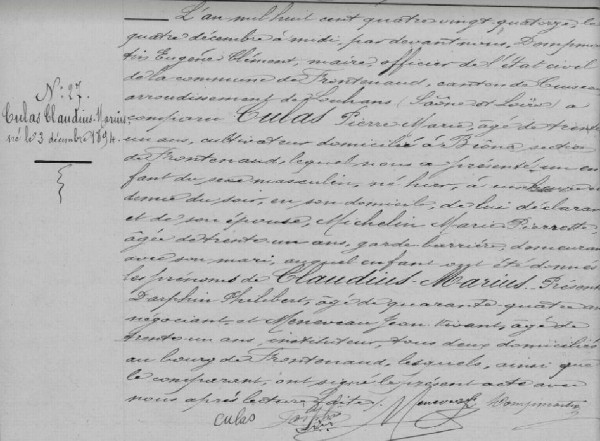 N°. 27.
Culas Claudius-Marius
né le 3 décembre 1894.
L'an mil huit cent quatre vingt-quatorze, le
quatre décembre à midi, par devant nous, Dompmar-
tin Eugène Clément, maire, officier de l'état civil
de la commune de Frontenaud, canton de Cuiseaux
arrondissement de Louhans (Saône et Loire) a
comparu CULAS Pierre Marie, âgé de trente
un ans, cultivateur domicilié à
de Frontenaud, lequel nous a présenté un en-
fant du sexe masculin, né hier, à
du soir, en son domicile, de lui déclarant
et de son épouse, Michelin Marie Pierrette,
âgée de trente un ans, garde barrière, demeurant
avec son mari, auquel enfant ont été donnés
les prénoms de Claudius-Marius. Présents
Philibert, âgé de quarante quatre ans
négociant, et Jean âgé de
trente un ans, instituteur, tous deux domiciliés
au bourg de Frontenaud, lesquels, ainsi que
le comparant, ont signé le présent acte avec
nous après lecture faite.
Culas Dompmartin